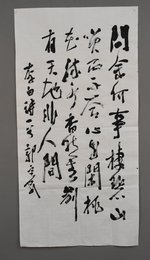 問余何事棲碧山
笑而不答心自閑桃
花流水杳然去別
有天地非人間
李白詩一首